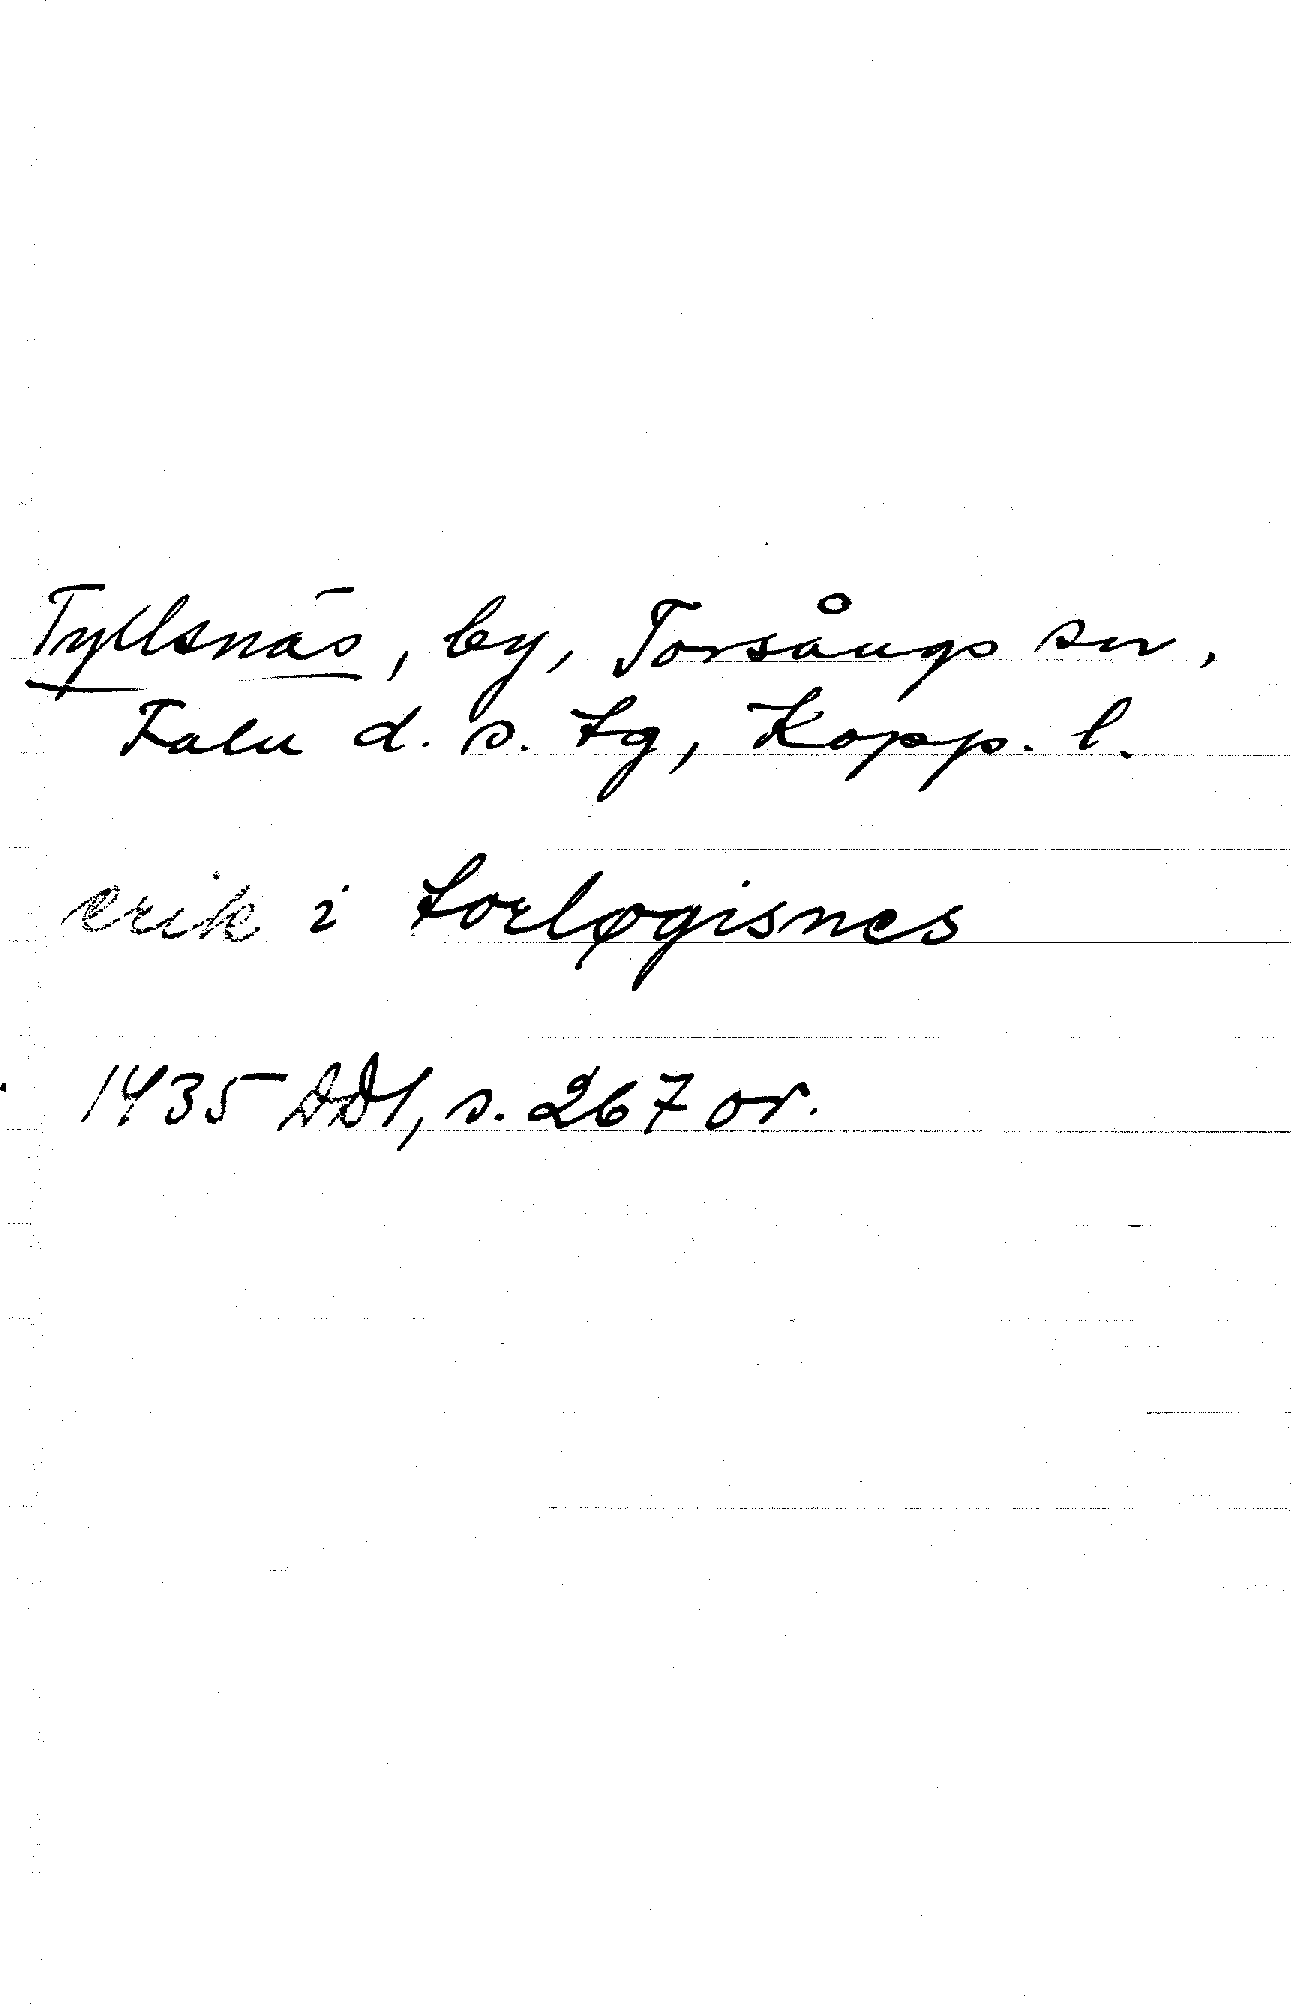 Tyllsnäs, by, Torsångs sn,
Falu d. s. tg, Kopp. l.
erik i torløgisnes
1435 DD1, s. 267 or.